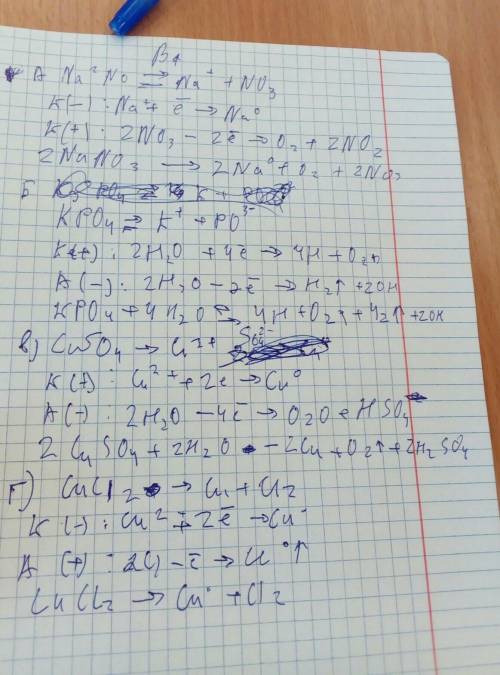 В4
А Na²No ⇄ Na⁺ + NO₃
K(-) : Na⁺ + ē → Na⁰
K(+) : 2NO₃ - 2ē → O₂ + 2NO₂
2NaNO₃ → 2Na⁰ + O₂ + 2NO₂
Б
KPO₄ ⇄ K⁺ + PO³⁻
K(+) : 2H₂O + 4ē → 4H + O₂
A(-) : 2H₂O - 2ē → H₂↑ + 2OH
KPO₄ + 4H₂O ⇄ 4H + O₂↑ + 4H₂↑ + 2OH
в) CuSO₄ → Cu²⁺ SO₄²⁻
K(+) : Cu²⁺ + 2ē → Cu⁰
A(-) : 2H₂O - 4ē → O₂O + HSO₄
2CuSO₄ + 2H₂O - 2Cu + O₂↑ + 2H₂SO₄
Г) CuCl₂ → Cu + Cl₂
K(-) : Cu² + 2ē → Cu
A (+) : 2Cl - ē → Cl⁰↑
CuCl₂ → Cu + Cl₂